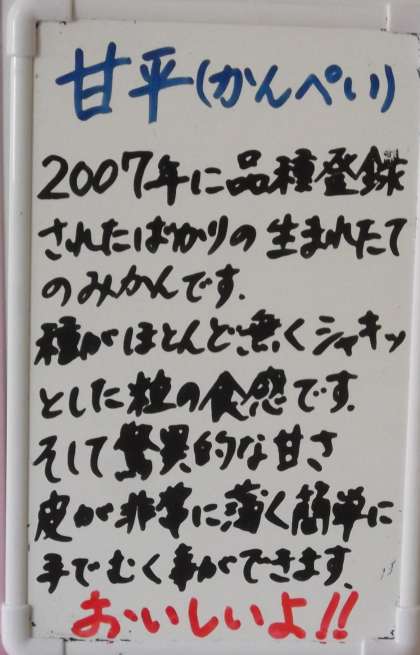 甘平(かんぺい)
2007年に品種登録
されたばかりの生まれたて
のみかんです.
種がほとんど無くシャキッ
とした粒の食感です.
そして驚異的な甘さ
皮が非常に薄く簡単に
手でむく事ができます.
おいしいよ!!